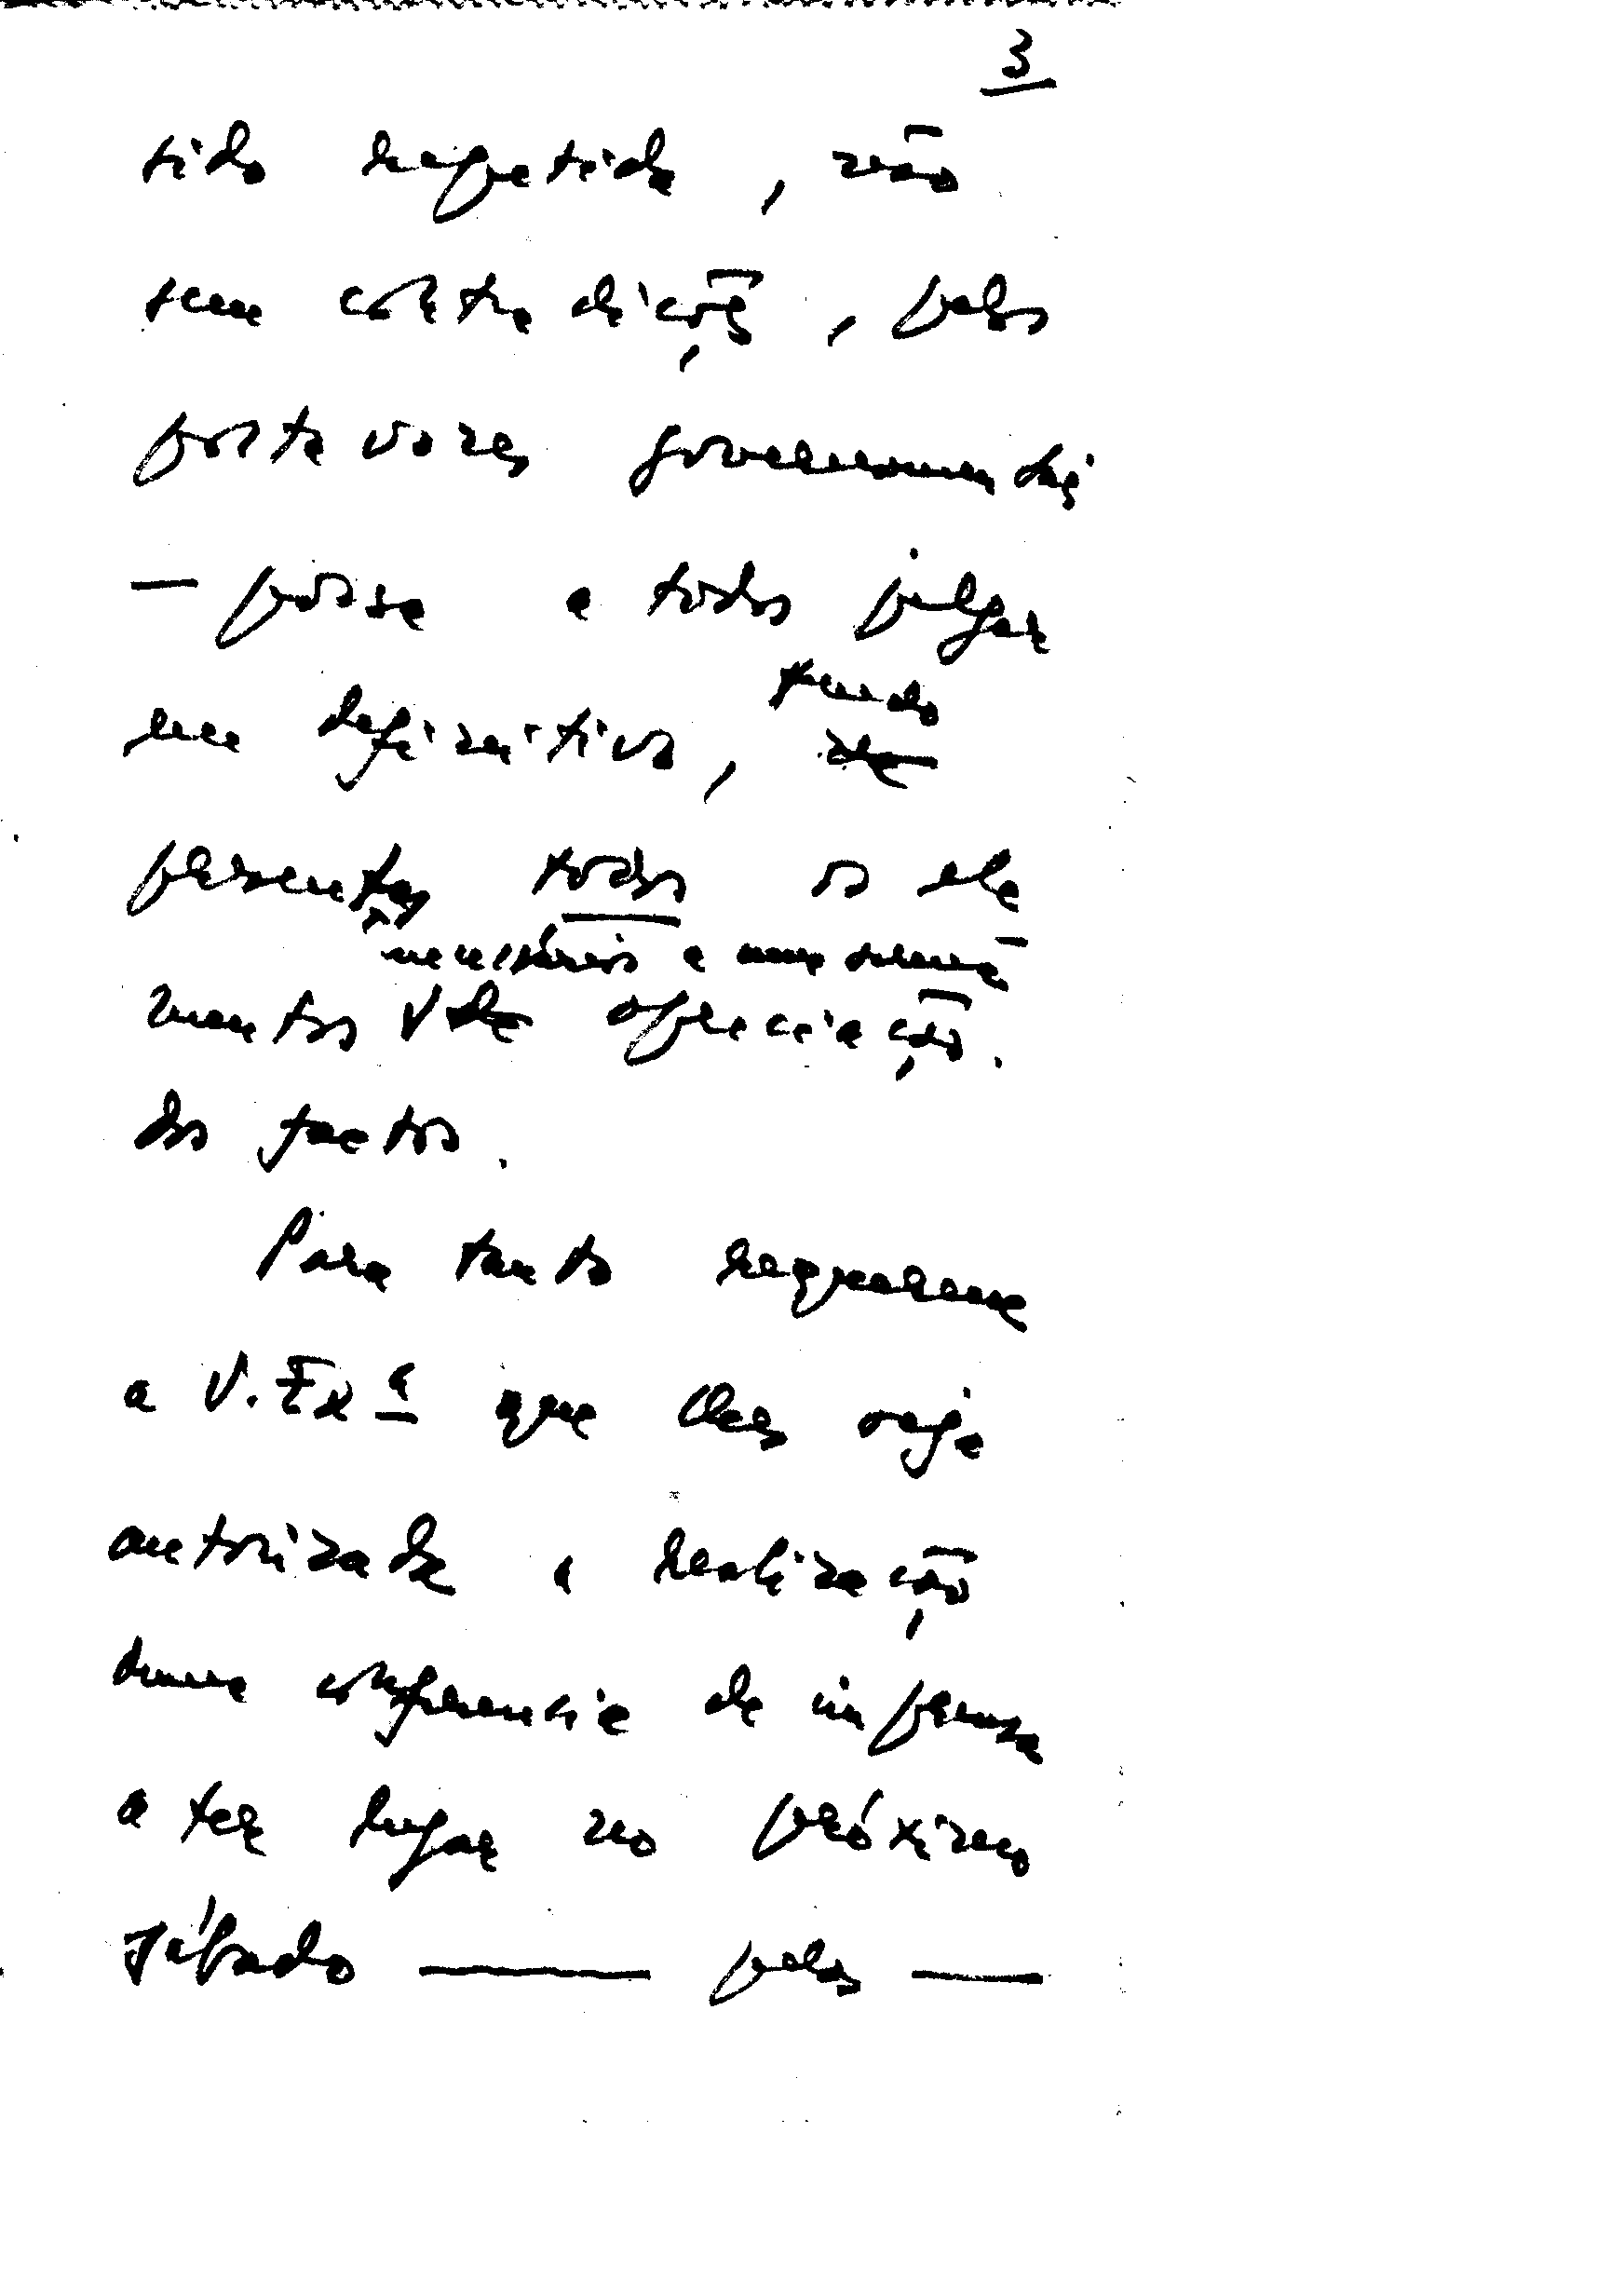 3
tido repetida, não
sem contradições, pelos
porta vozes governamentais
— possa e todos julgar
em definitivo, tendo
presentes todos os ele
necessários a uma
mentos apreciação
dos factos.
Para tanto requerem
a V. Exª que lhes seja
autorizada a realização
duma conferencia de imprensa
a ter lugar no próximo
sábado — pelas —